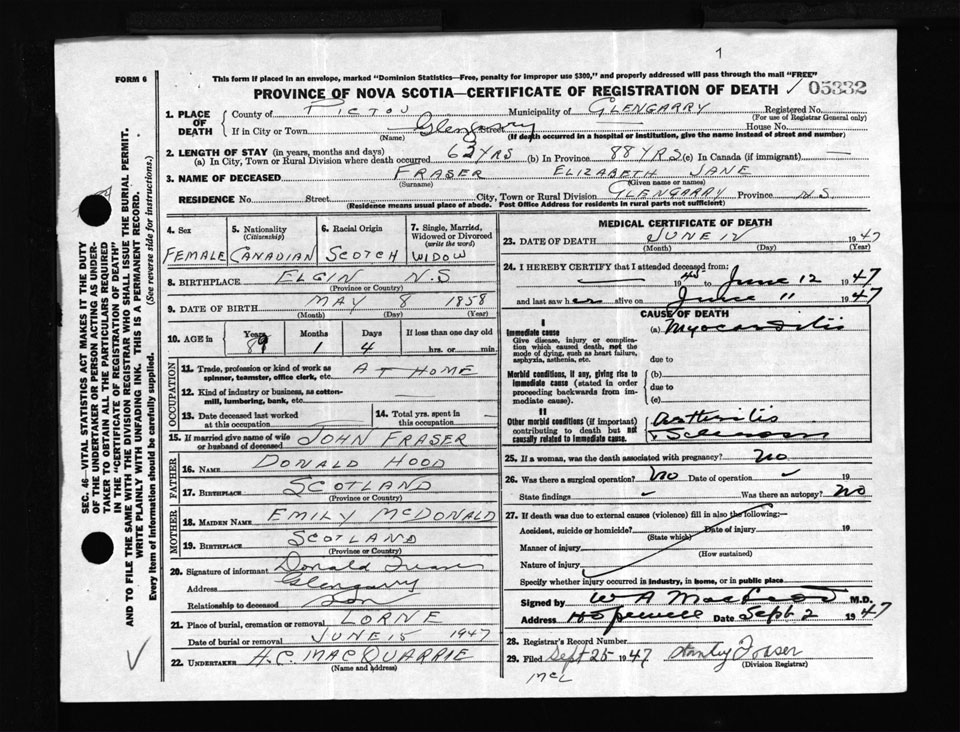 1
FORM 6
This form if placed in an envelope, marked "Dominion Statistics—Free, penalty for improper use $300," and properly addressed will pass through the mail "FREE"
PROVINCE OF NOVA SCOTIA—CERTIFICATE OF REGISTRATION OF DEATH √ 05332
SEC. 46—VITAL STATISTICS ACT MAKES IT THE DUTY
OF THE UNDERTAKER OR PERSON ACTING AS UNDER-
TAKER TO OBTAIN ALL THE PARTICULARS REQUIRED
IN THE "CERTIFICATE OF REGISTRATION OF DEATH"
AND TO FILE THE SAME WITH THE DIVISION REGISTRAR WHO SHALL ISSUE THE BURIAL PERMIT.
WRITE PLAINLY WITH UNFADING INK. THIS IS A PERMANENT RECORD.
Every item of information should be carefully supplied. (See reverse side for instructions.)
1. PLACE OF DEATH
County of PICTOU Municipality of GLENGARRY Registered No.
(For use of Registrar General only)
If in City or Town Glengarry Street House No.
(Name) (If death occurred in a hospital or institution, give the name instead of street and number)
2. LENGTH OF STAY (in years, months and days)
(a) In City, Town or Rural Division where death occurred 62 YRS (b) In Province 88 YRS (c) In Canada (if immigrant) —
3. NAME OF DECEASED FRASER ELIZABETH JANE
(Surname) (Given name or names)
RESIDENCE No. Street City, Town or Rural Division GLENGARRY Province N.S.
(Residence means usual place of abode. Post Office Address for residents in rural parts not sufficient)
4. Sex
FEMALE
5. Nationality
(Citizenship)
CANADIAN
6. Racial Origin
SCOTCH
7. Single, Married,
Widowed or Divorced
(write the word)
WIDOW
8. BIRTHPLACE ELGIN N.S
(Province or Country)
9. DATE OF BIRTH MAY 8 1858
(Month) (Day) (Year)
10. AGE in
Years Months Days If less than one day old
89 1 4 hrs. or min.
OCCUPATION
11. Trade, profession or kind of work as
spinner, teamster, office clerk, etc. AT HOME
12. Kind of industry or business, as cotton-
mill, lumbering, bank, etc.
13. Date deceased last worked
at this occupation
14. Total yrs. spent in
this occupation
15. If married give name of wife
or husband of deceased JOHN FRASER
FATHER
16. NAME DONALD HOOD
17. BIRTHPLACE SCOTLAND
(Province or Country)
MOTHER
18. MAIDEN NAME EMILY MCDONALD
19. BIRTHPLACE SCOTLAND
(Province or Country)
20. Signature of informant Donald Fraser
Address Glengarry
Relationship to deceased Son
21. Place of burial, cremation or removal LORNE
Date of burial or removal JUNE 15 1947
22. UNDERTAKER H.C. MACQUARRIE
(Name and Address)
MEDICAL CERTIFICATE OF DEATH
23. DATE OF DEATH JUNE 12 1947
(Month) (Day) (Year)
24. I HEREBY CERTIFY that I attended deceased from:
— 1945 to June 12 1947
and last saw her alive on June 11 1947
CAUSE OF DEATH
I
Immediate cause
Give disease, injury or complica-
tion which caused death, not the
mode of dying, such as heart failure,
asphyxia, asthenia, etc.
(a) Myocarditis
due to
Morbid conditions, if any, giving rise to
immediate cause (stated in order
proceeding backwards from im-
mediate cause).
(b)
due to
(c)
II
Other morbid conditions (if important)
contributing to death but not
causally related to immediate cause.
Arthritis
25. If a woman, was the death associated with pregnancy? No
26. Was there a surgical operation? No Date of operation 19
State findings Was there an autopsy? No
27. If death was due to external causes (violence) fill in also the following:—
Accident, suicide or homicide? Date of injury 19
(State which)
Manner of injury
(How sustained)
Nature of injury
Specify whether injury occurred in industry, in home, or in public place
Signed by W A MacLeod M.D.
Address Hopewell Date Sept 2 1947
28. Registrar's Record Number
29. Filed Sept 25 1947 Stanley Fraser
(Division Registrar)
McL